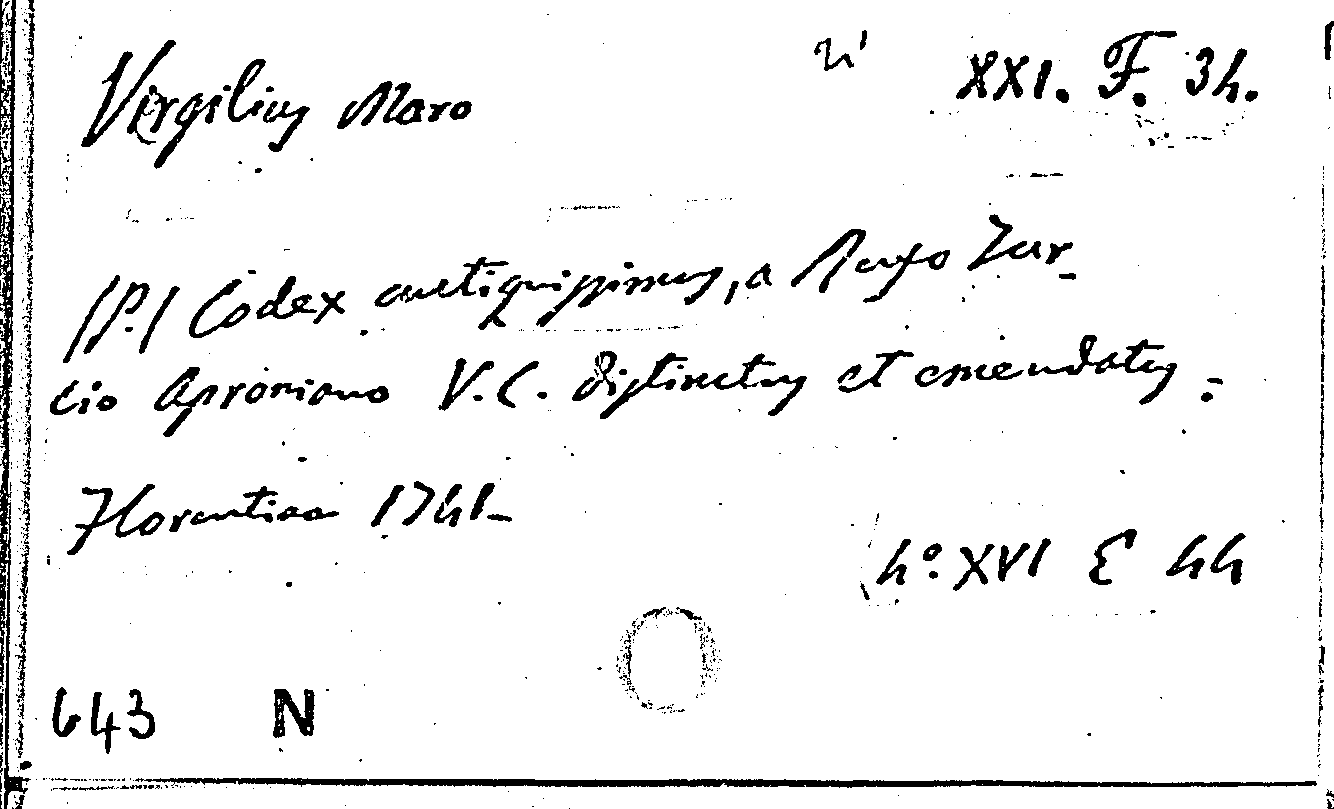 Virgilius Maro
XXI. F. 34.
(P.) Codex antiquissimus, a Rufo Tur-
cio Aproniano V.C. distinctus et emendatus.
Florentiae 1741
4°. XVI E 44
643 N